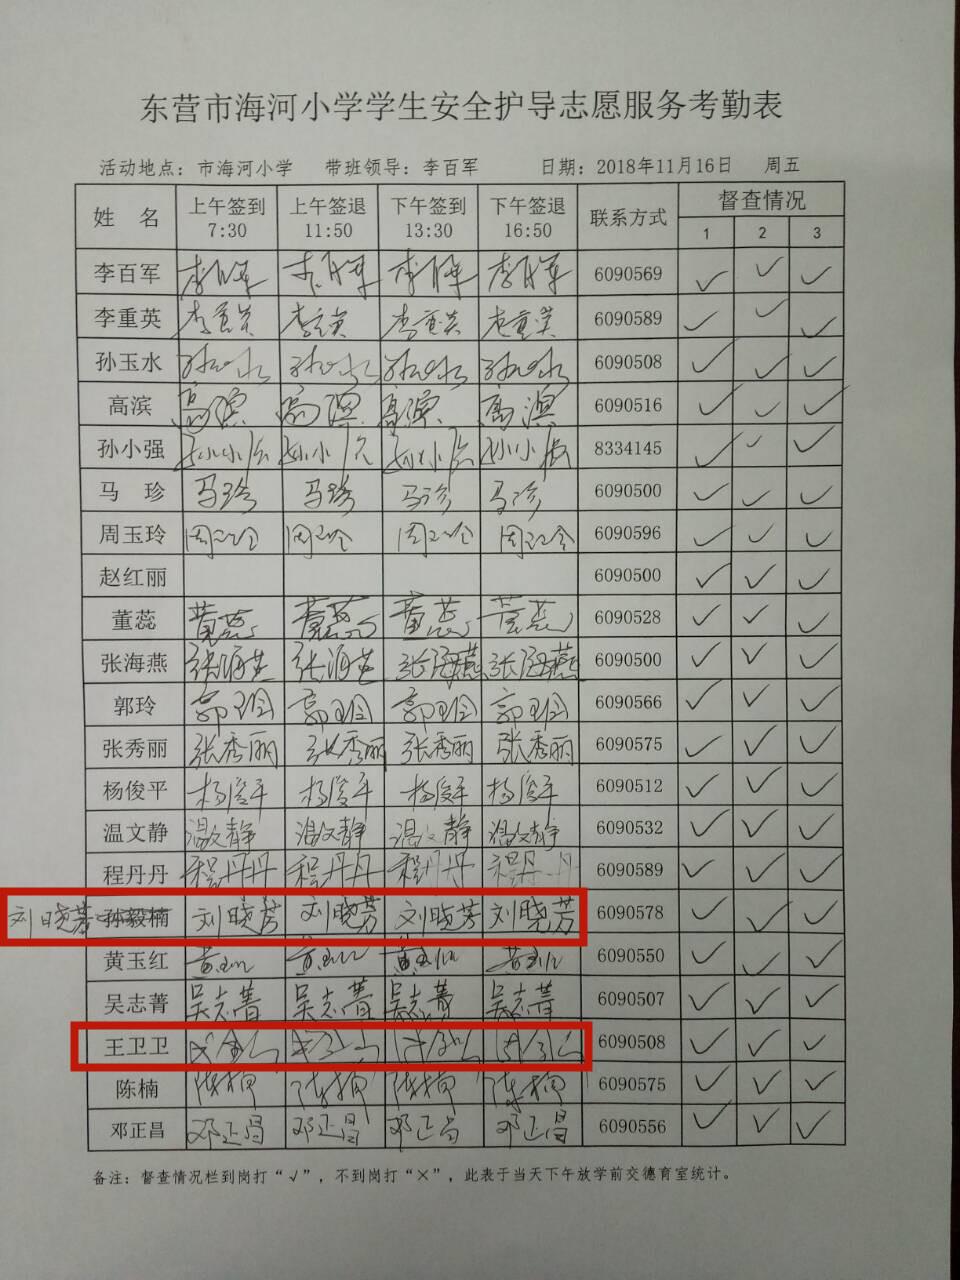 东营市海河小学学生安全护导志愿服务考勤表
活动地点：市海河小学 带班领导：李百军 日期：2018年11月16日 周五
姓 名 上午签到 7:30 上午签退 11:50 下午签到 13:30 下午签退 16:50 联系方式 督查情况 1 2 3
李百军 李百军 李百军 李百军 李百军 6090569 ✓ ✓ ✓
李重英 李重英 李重英 李重英 李重英 6090589 ✓ ✓ ✓
孙玉水 孙玉水 孙玉水 孙玉水 孙玉水 6090508 ✓ ✓ ✓
高滨 高滨 高滨 高滨 高滨 6090516 ✓ ✓ ✓
孙小强 孙小强 孙小强 孙小强 孙小强 8334145 ✓ ✓ ✓
马 珍 马珍 马珍 马珍 马珍 6090500 ✓ ✓ ✓
周玉玲 周玉玲 周玉玲 周玉玲 周玉玲 6090596 ✓ ✓ ✓
赵红丽 6090500 ✓ ✓ ✓
董蕊 董蕊 董蕊 董蕊 董蕊 6090528 ✓ ✓ ✓
张海燕 张海燕 张海燕 张海燕 张海燕 6090500 ✓ ✓ ✓
郭玲 郭玲 郭玲 郭玲 郭玲 6090566 ✓ ✓ ✓
张秀丽 张秀丽 张秀丽 张秀丽 张秀丽 6090575 ✓ ✓ ✓
杨俊平 杨俊平 杨俊平 杨俊平 杨俊平 6090512 ✓ ✓ ✓
温文静 温文静 温文静 温文静 温文静 6090532 ✓ ✓ ✓
程丹丹 程丹丹 程丹丹 程丹丹 程丹丹 6090589 ✓ ✓ ✓
刘晓芳 孙毅楠 刘晓芳 刘晓芳 刘晓芳 刘晓芳 6090578 ✓ ✓ ✓
黄玉红 黄玉红 黄玉红 黄玉红 黄玉红 6090550 ✓ ✓ ✓
吴志菁 吴志菁 吴志菁 吴志菁 吴志菁 6090507 ✓ ✓ ✓
王卫卫 6090508 ✓ ✓ ✓
陈楠 陈楠 陈楠 陈楠 陈楠 6090575 ✓ ✓ ✓
邓正昌 邓正昌 邓正昌 邓正昌 邓正昌 6090556 ✓ ✓ ✓
备注：督查情况栏到岗打“√”，不到岗打“×”，此表于当天下午放学前交德育室统计。